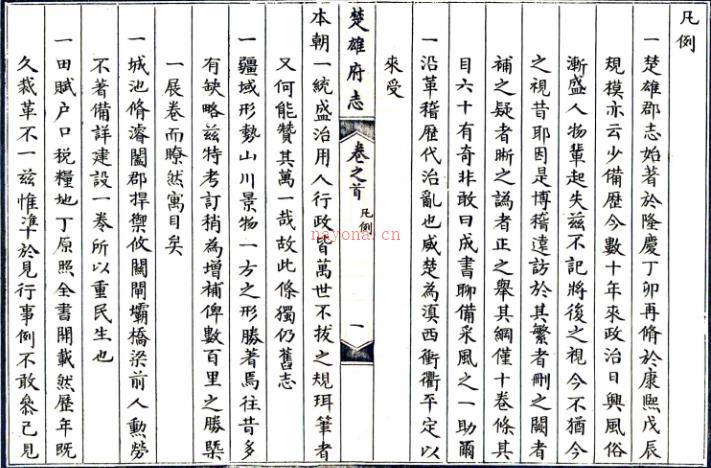 凡例
一楚雄郡志始著於隆慶丁卯再脩於康熙戊辰
規模亦云少備歷今數十年來政治日興風俗
漸盛人物輩起失茲不記將後之視今不猶今
之視昔耶因是博稽遠訪於其繁者刪之闕者
補之疑者晰之譌者正之舉其綱僅十卷條其
目六十有奇非敢曰成書聊備采風之一助爾
一沿革稽歷代治亂也威楚為滇西衝衢平定以
來受
楚雄府志
卷之首
凡例
一
本朝一統盛治用人行政皆萬世不拔之規珥筆者
又何能贊其萬一哉故此條獨仍舊志
一疆域形勢山川景物一方之形勝著焉往昔多
有缺略茲特考訂稍為增補俾數百里之勝槩
一展卷而瞭然寓目矣
一城池脩濬闔郡捍禦攸關閘壩橋梁前人勳勞
不著備詳建設一卷所以重民生也
一田賦户口稅糧地丁原照全書開載然歷年既
久裁革不一茲惟準於見行事例不敢叅己見
nayona.cn